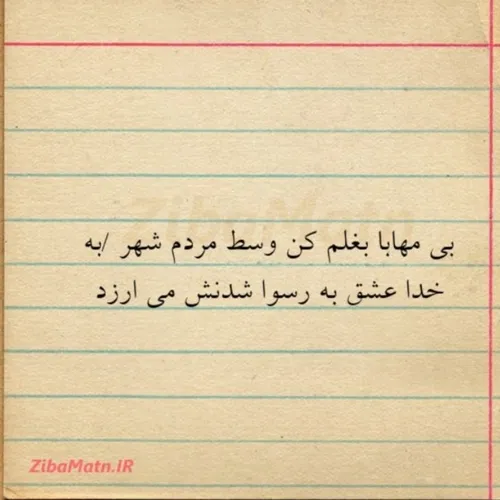 ZibaMatn
بی مهابا بغلم کن وسط مردم شهر /به
خدا عشق به رسوا شدنش می ارزد
ZibaMatn.IR